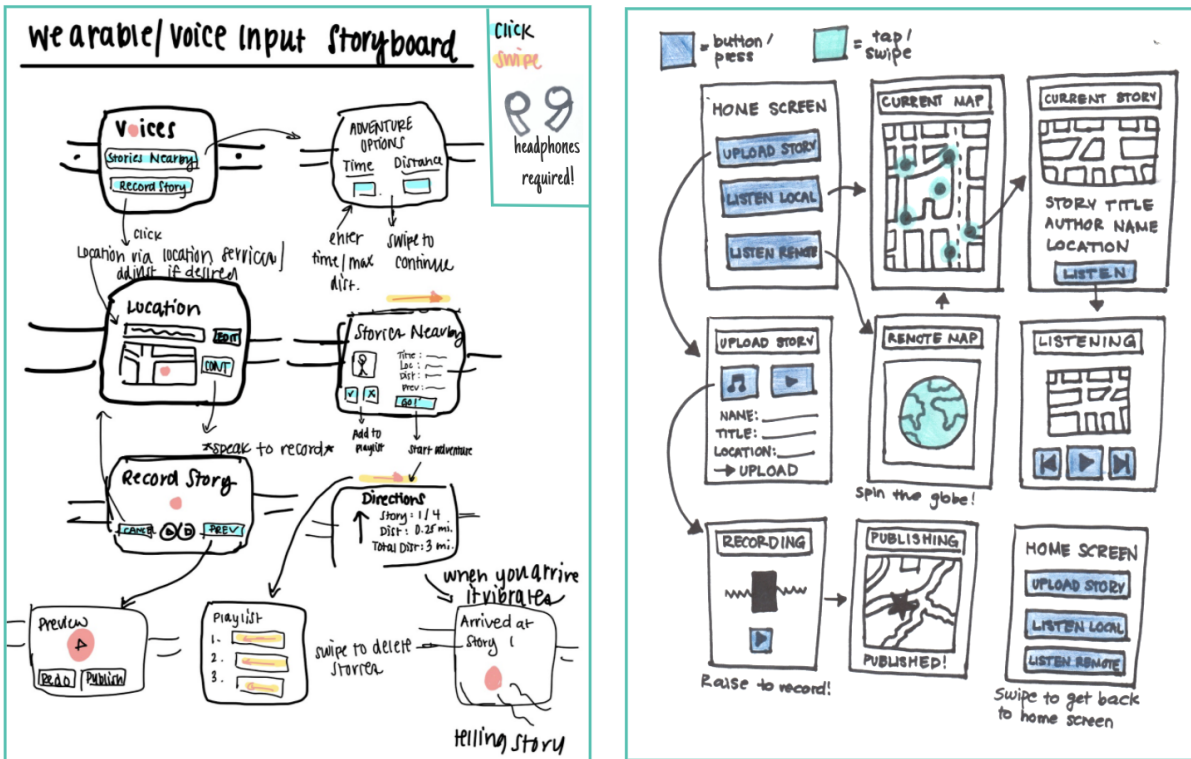 Wearable/Voice Input Storyboard
click
swipe
headphones
required!
Voices
Stories Nearby
Record Story
ADVENTURE
OPTIONS
Time Distance
click
Location via location services/
adjust if desired
enter
time/max
dist.
swipe to
continue
Location
EDIT
CONT
Stories Nearby
Time:
Loc:
Dist:
Prev:
GO!
Add to
playlist
Start adventure
*speak to record*
Record Story
CANCEL
PREV
Directions
Story: 1/4
Dist: 0.25 mi.
Total Dist: 3 mi.
when you arrive
it vibrates
Preview
Redo
Publish
Playlist
1.
2.
3.
swipe to delete
stories
Arrived at
Story 1
telling story
= button/
press
= tap/
swipe
HOME SCREEN
UPLOAD STORY
LISTEN LOCAL
LISTEN REMOTE
CURRENT MAP
CURRENT STORY
STORY TITLE
AUTHOR NAME
LOCATION
LISTEN
UPLOAD STORY
NAME:
TITLE:
LOCATION:
→ UPLOAD
REMOTE MAP
Spin the globe!
LISTENING
RECORDING
Raise to record!
PUBLISHING
PUBLISHED!
HOME SCREEN
UPLOAD STORY
LISTEN LOCAL
LISTEN REMOTE
Swipe to get back
to home screen